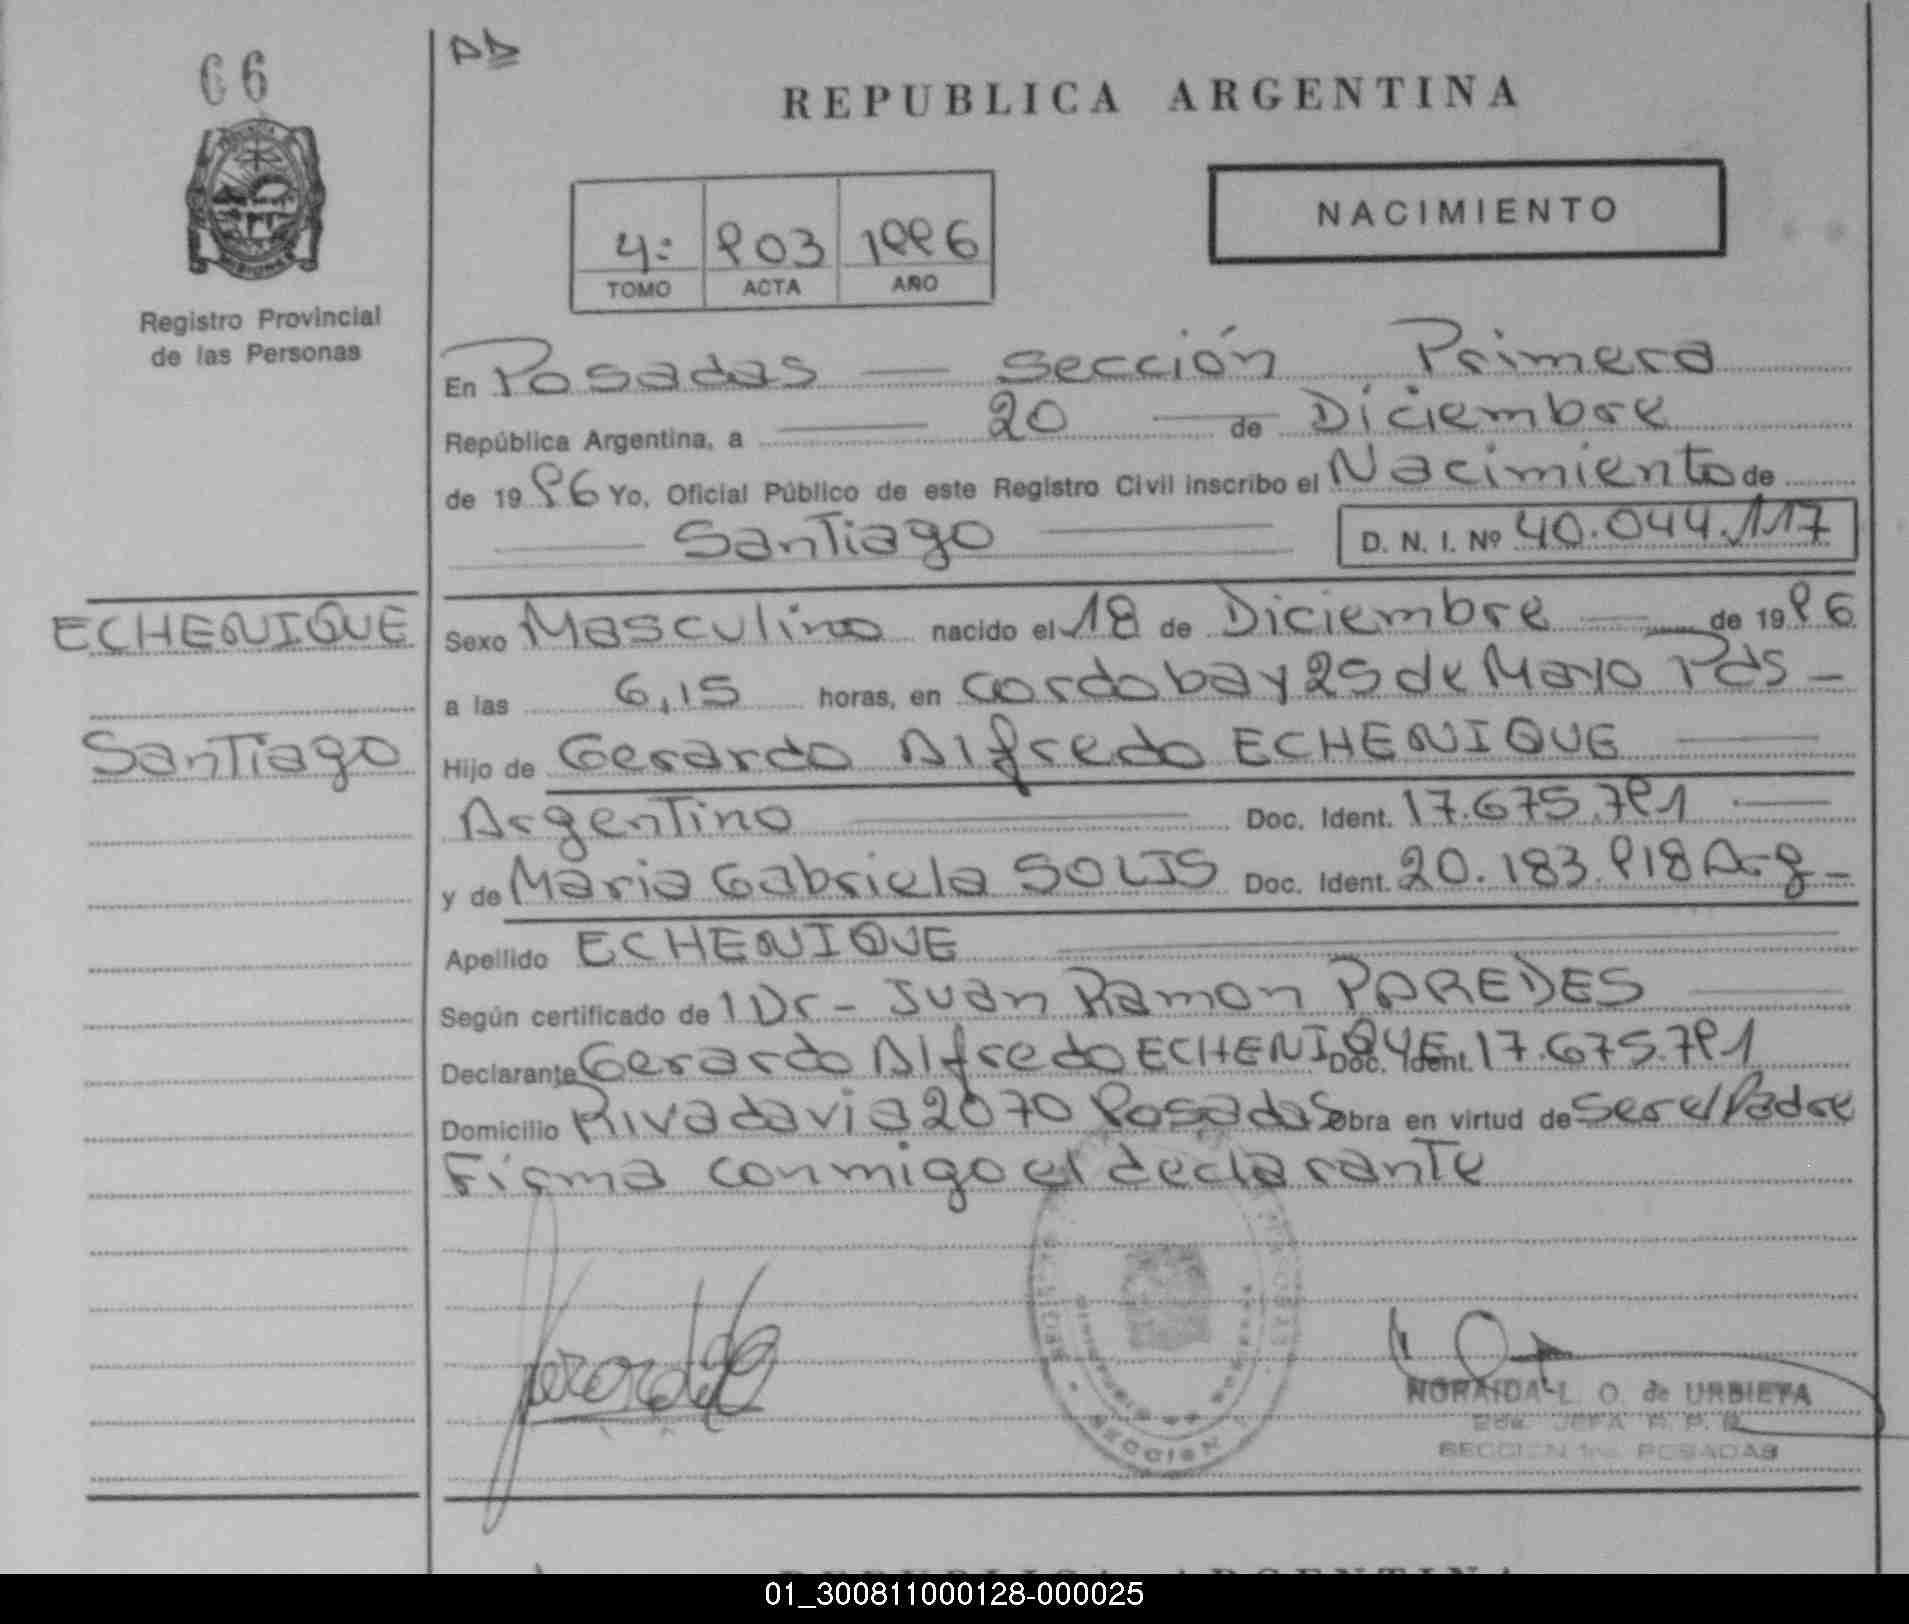 66
REPUBLICA ARGENTINA
NACIMIENTO
4: 903 1996
TOMO ACTA AÑO
Registro Provincial
de las Personas
En Posadas — Sección Primera
República Argentina, a — 20 — de Diciembre
de 1996 Yo, Oficial Público de este Registro Civil inscribo el Nacimiento de
— Santiago — D. N. I. Nº 40.044.117
ECHENIQUE
Santiago
Sexo Masculino nacido el 18 de Diciembre — de 1996
a las 6,15 horas, en Cordoba y 25 de Mayo Pds -
Hijo de Gerardo Alfredo ECHENIQUE —
Argentino — Doc. Ident. 17.675.791 —
y de Maria Gabriela SOLIS Doc. Ident. 20.183.918 Arg -
Apellido ECHENIQUE —
Según certificado de 1 Dr - Juan Ramon PAREDES —
Declarante Gerardo Alfredo ECHENIQUE Doc. Ident. 17.675.791
Domicilio Rivadavia 2070 Posadas obra en virtud de Ser el Padre
Firma conmigo el declarante
NORAIDA L. O. de URBIETA
JEFA R. P. P.
SECCION 1ra. POSADAS
SECCION
REPUBLICA ARGENTINA
01_300811000128-000025